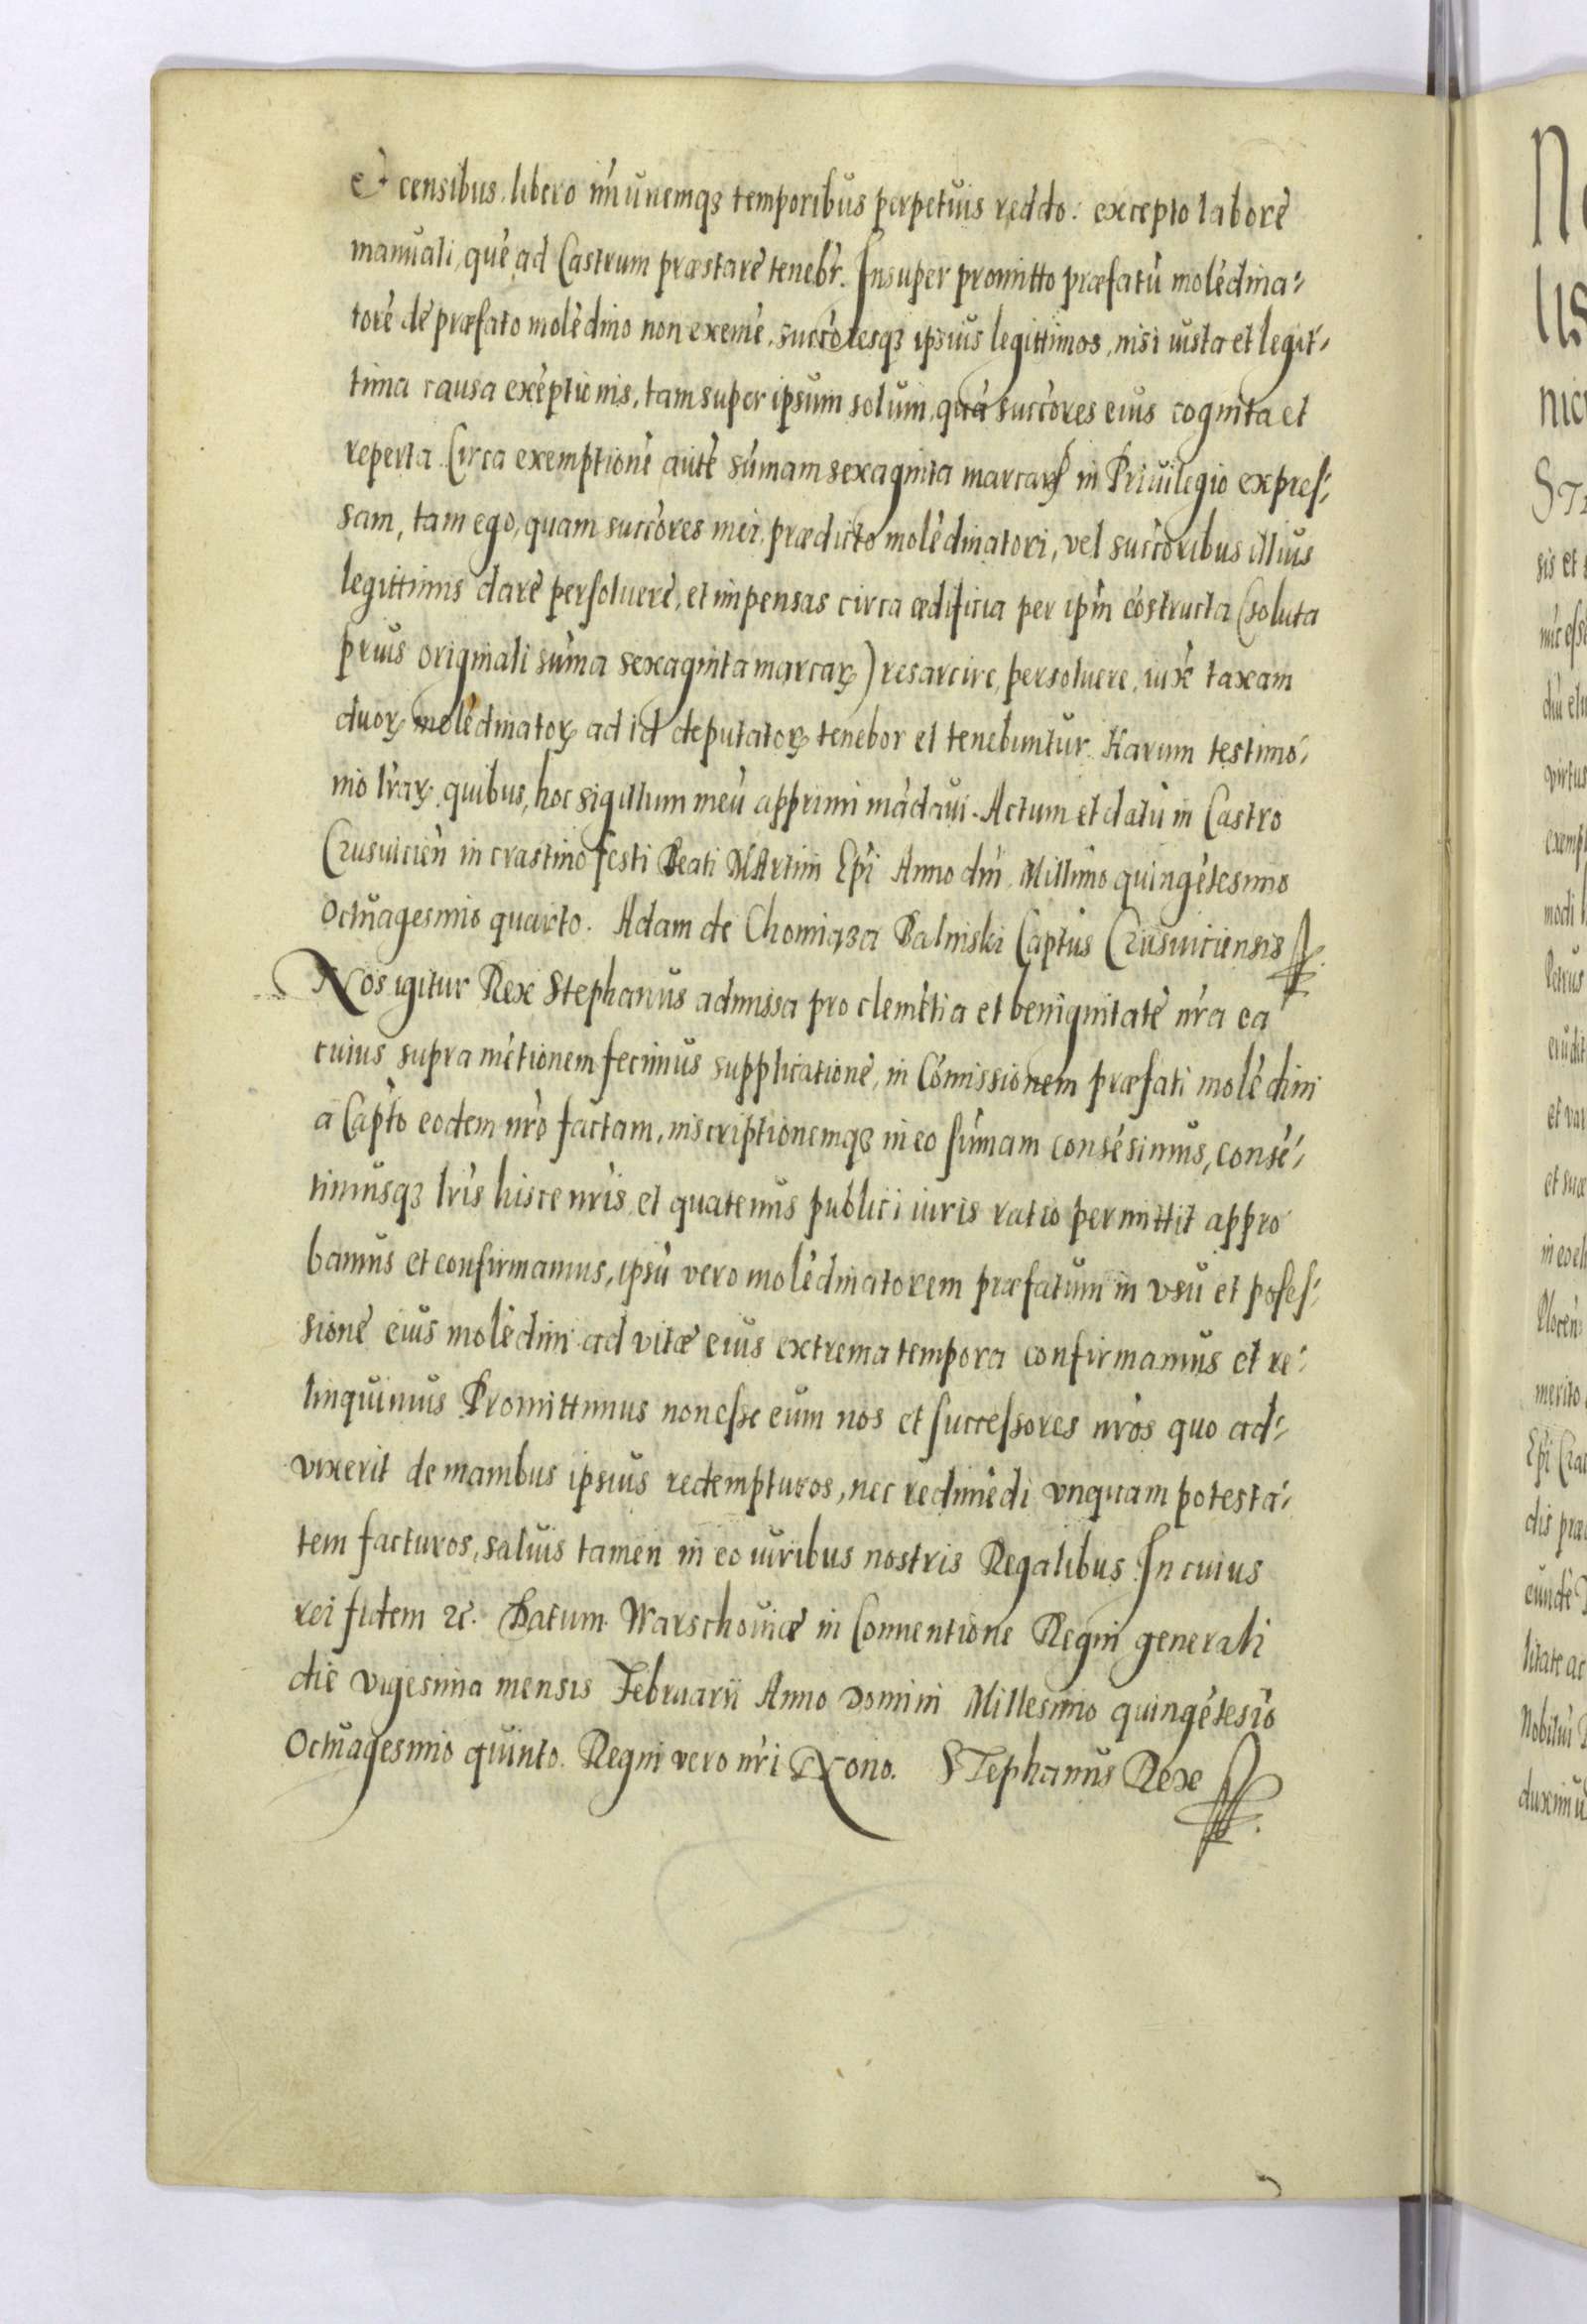 et censibus, libero im̄unemqꝫ temporibus perpetuis reddo: excepto labore
manuali, quē ad Castrum præstare tenebr̄. Insuper promitto præfatū molēdina-
torē de præfato molēdino non exemē, succōresqꝫ ipsius legittimos, nisi iusta et legit-
tima causa exēptionis, tam super ipsum solum, quā succōres eius cognita et
reperta. Circa exemptionē autē sūmam sexaginta marcarꝝ in Priuilegio expres-
sam, tam ego, quam succōres mei, prædicto molēdinatori, vel succōribus illius
legittimis dare persoluere, et impensas circa ædificia per ipm̄ cōstructa (soluta
prius originali sūma sexaginta marcaꝝ) resarcire, persoluere, iux̄ taxam
duoꝝ molēdinatoꝝ ad id deputatoꝝ tenebor et tenebuntur. Harum testimo-
nio lr̄aꝝ quibus, hoc sigillum meū apprimi mādaui. Actum et datū in Castro
Crusuicien̄ in crastino festi Beati MArtini Ep̄i Anno dn̄i Millīmo quingētesimo
Octuagesimo quarto. Adam de Chomiąza Balinski Captūs Crusuiciensis
Nos igitur Rex Stephanus admissa pro clemētia et benignitate nr̄a ea
cuius supra mētionem fecimus supplicatione, in Cōmissionem præfati molēdini
a Captō eodem nr̄o factam, inscriptionemqꝫ in eo sūmam consēsimus, consē-
timusqꝫ lr̄is hisce nr̄is, et quatenus publici iuris ratio permittit appro
bamus et confirmamus, ipsū vero molēdinatorem præfatum in vsu et posses-
sione eius molēdini ad vitæ eius extrema tempora confirmamus et re-
linquimus Promittimus non esse eum nos et successores nr̄os quo ad-
vixerit de manibus ipsius redempturos, nec redimēdi vnquam potesta-
tem facturos, saluis tamen in eo iuribus nostris Regalibus. In cuius
rei fidem ꝛc̄. Datum Warschouiæ in Conuentione Regni generali
die vigesima mensis Februarii Anno Domini Millesimo quingētesio
Octuagesimo quinto. Regni vero nr̄i Nono. STephanus Rex